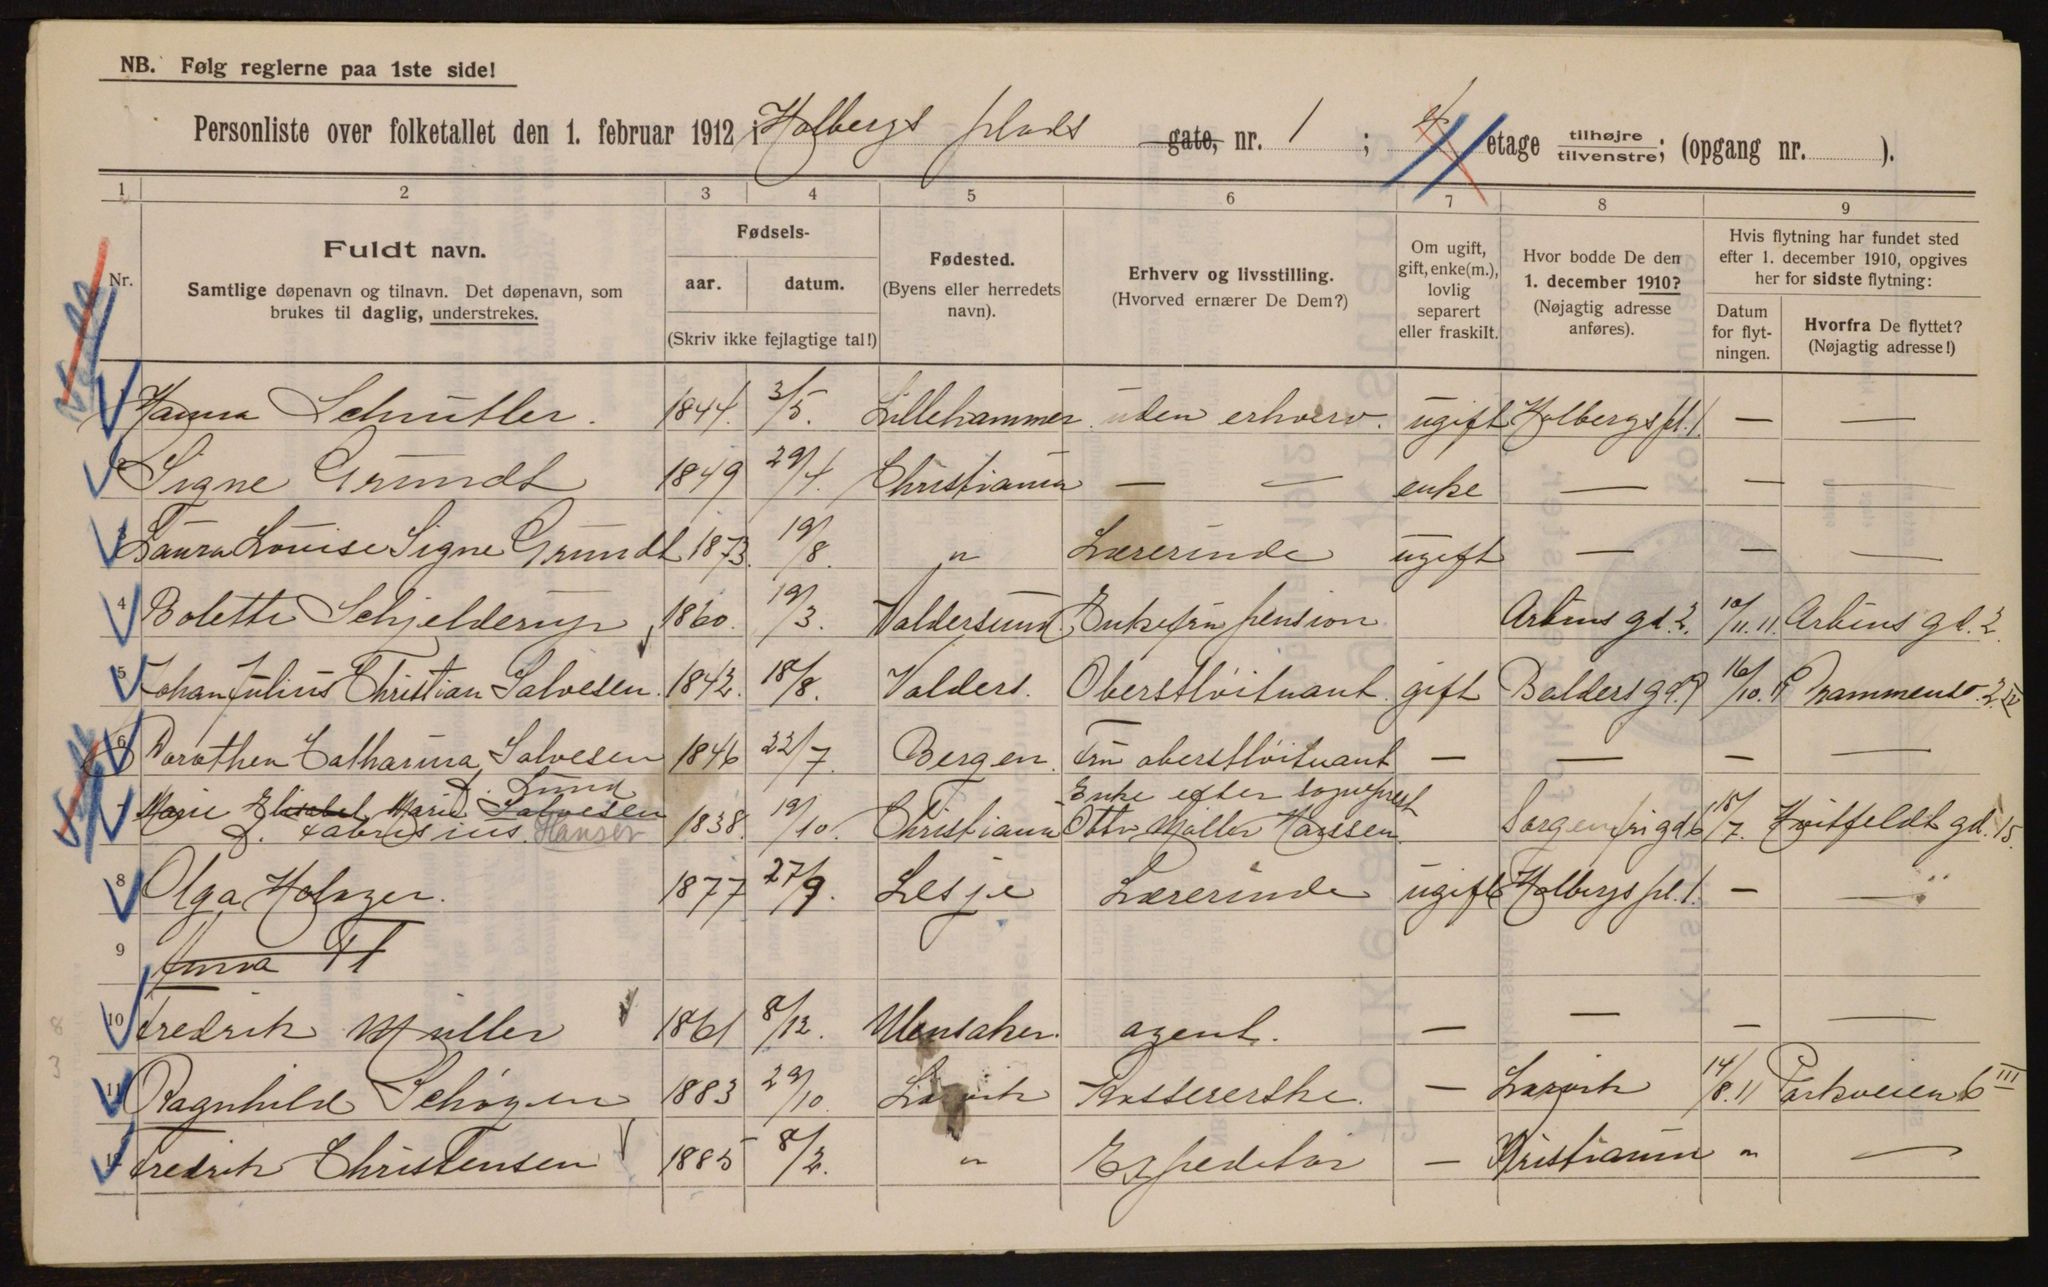 NB. Følg reglerne paa 1ste side!
Personliste over folketallet den 1. februar 1912 i Holbergs plads gate, nr. 1 ; 4 etage tilhøjre tilvenstre; (opgang nr. ).
1 2 3 4 5 6 7 8 9
Nr.
Fuldt navn.
Samtlige døpenavn og tilnavn. Det døpenavn, som
brukes til daglig, understrekes.
Fødsels-
aar. datum.
(Skriv ikke fejlagtige tal!)
Fødested.
(Byens eller herredets
navn).
Erhverv og livsstilling.
(Hvorved ernærer De Dem?)
Om ugift,
gift, enke(m.),
lovlig
separert
eller fraskilt.
Hvor bodde De den
1. december 1910?
(Nøjagtig adresse
anføres).
Hvis flytning har fundet sted
efter 1. december 1910, opgives
her for sidste flytning:
Datum
for flyt-
ningen.
Hvorfra De flyttet?
(Nøjagtig adresse!)
1 Hanna Schrutler. 1844. 3/5. Lillehammer uden erhverv. ugift Holbergs pl. 1. — —
2 Signe Grundt 1849 29/4. Christiania — — enke — — —
3 Laura Louise Signe Grundt 1873. 19/8. " Lærerinde ugift — — —
4 Bolette Schjelderup 1860. 19/3. Valdersund Enkefru pension Arbins gd. 2. 10/11.11. Arbins gd. 2.
5 Johan Julius Christian Salvesen. 1842. 18/8. Valders. Oberstløitnant. gift Baldersgd. 16/10.11 2 IV
6 Dorothea Catharina Salvesen 1846 22/7. Bergen. Fru oberstløitnant — — — —
f. Lund
7 Marie Elisabet Marie Salvesen 1838. 19/10. Christiania Enke efter sogneprest
f. Fabricius. Hansen Otto Møller Hanssen. Sorgenfrigd 6 15/7. Hvitfeldt gd. 15.
8 Olga Holager. 1877 27/9. Lesje Lærerinde ugift Holbergs pl. 1. — —
9 Anna
10 Fredrik Müller 1861 8/12. Ullensaker. agent. — — — —
11 Ragnhild Schøyen 1883 29/10. Larvik Kassererske. — Larvik 14/8.11 Parkveien 6 III
12 Fredrik Christensen 1885 8/2. " Expeditør — Kristiania " —